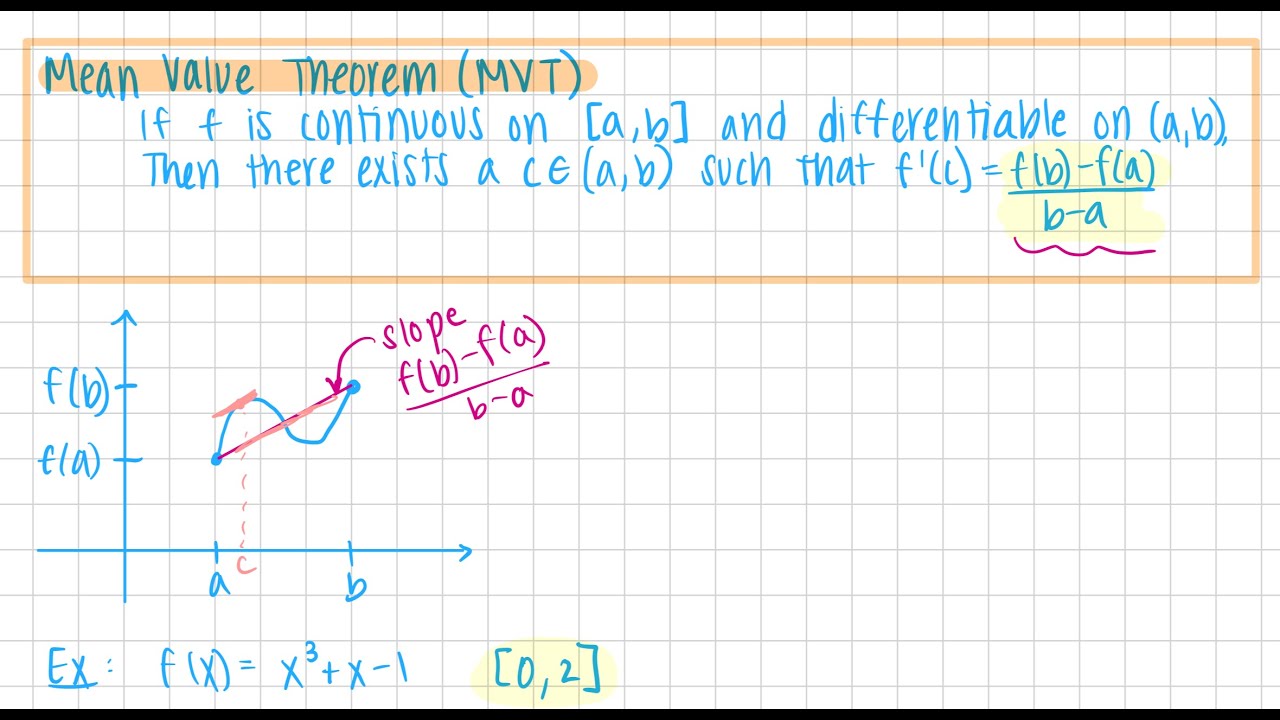 Mean Value Theorem (MVT)
If f is continuous on [a,b] and differentiable on (a,b),
Then there exists a c∈(a,b) such that f'(c) = f(b)-f(a)
b-a
slope
f(b)-f(a)
b-a
f(b)
f(a)
c
a
b
Ex: f(x) = x³+x-1 [0,2]